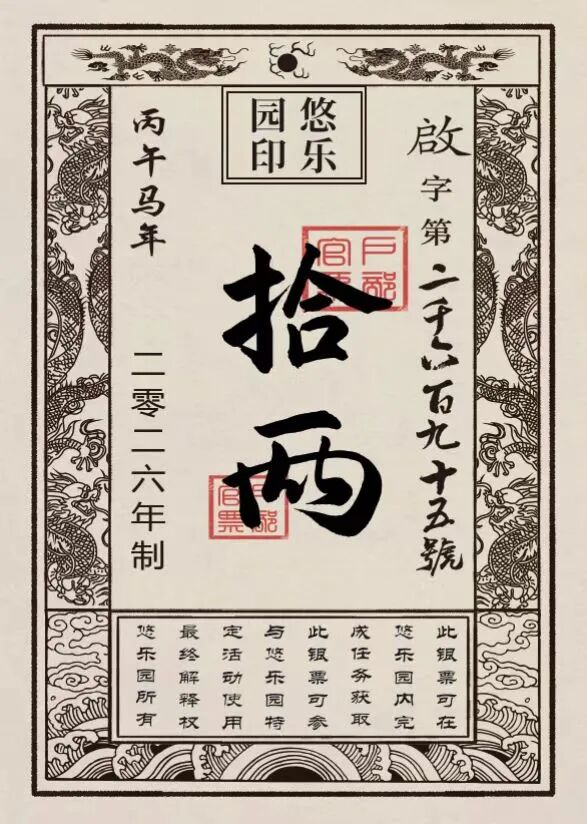 悠乐
园印
啟字第二千六百九十五號
拾两
户部
官票
户部
官票
丙午马年
二零二六年制
此银票可在
悠乐园内完
成任务获取
此银票可参
与悠乐园特
定活动使用
最终解释权
悠乐园所有